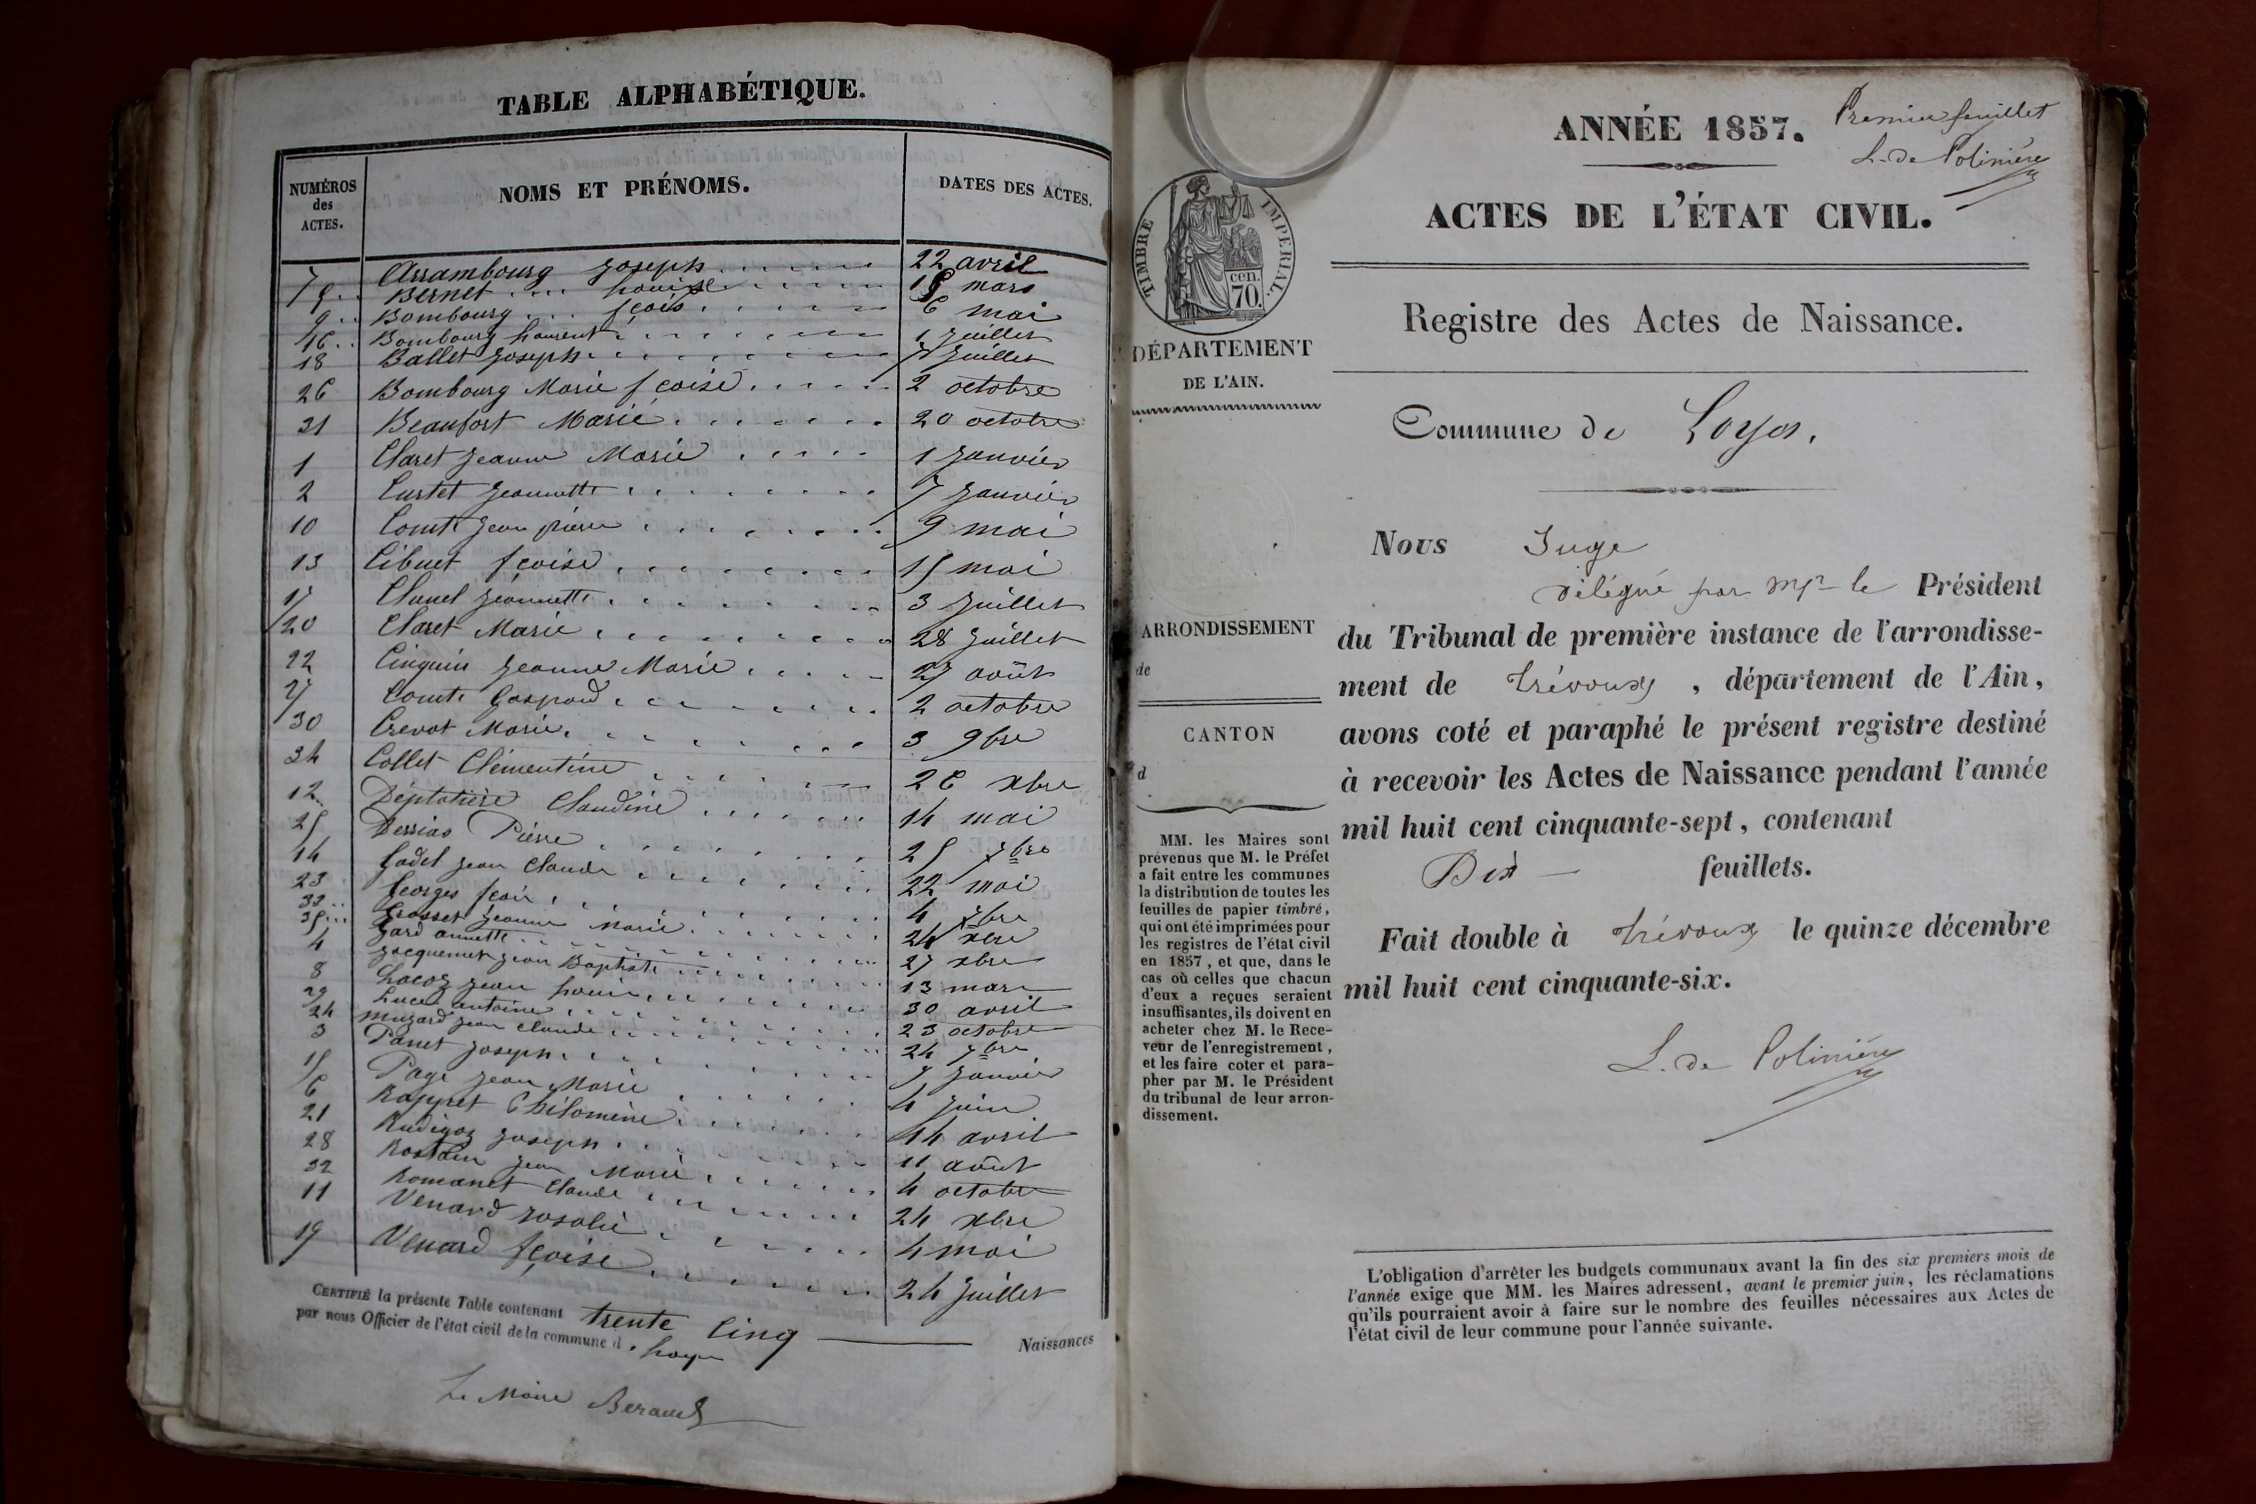 TABLE ALPHABÉTIQUE.
NUMÉROS des ACTES. NOMS ET PRÉNOMS. DATES DES ACTES.
7 Arrambourg Joseph 22 avril
5 Bernet Louise 15 mars
9 Bombourg fçois 6 mai
16 Bombourg Laurent 1 Juillet
18 Ballet Joseph 7 Juillet
26 Bombourg Marie fçoise 2 octobre
31 Beaufort Marie 20 octobre
1 Claret Jeanne Marie 1 Janvier
2 Curtet Jeannette 7 Janvier
10 Comte Jean pierre 9 mai
13 Cibuet fçoise 15 mai
17 Clauel Jeannette 3 Juillet
20 Claret Marie 28 Juillet
22 Cinquin Jeanne Marie 27 août
27 Comte Gaspard 2 octobre
30 Crevat Marie 3 9bre
34 Collet Clémentine 26 xbre
12 Déplatière Claudine 14 mai
25 Dessias Pierre 25 7bre
14 fadet Jean Claude 22 mai
23 Georges fçois 4 7bre
33 Grosset Jeanne Marie 24 xbre
35 Jard annette 27 xbre
4 Jacquemet Jean Baptiste 13 mars
8 Lacoz Jean Louis 30 avril
29 Luced antoine 23 octobre
24 Muzard Jean Claude 24 7bre
3 Panet Joseph 7 Janvier
15 Page Jean Marie 4 Juin
6 Rappret Philomène 14 avril
21 Rudigoz Joseph 11 août
28 Rostain Jean Marie 4 octobre
32 Romanet Claude 24 xbre
11 Venard Rosalie 4 mai
19 Venard fçoise 24 Juillet
CERTIFIÉ la présente Table contenant trente Cinq Naissances
par nous Officier de l'état civil de la commune d. Loyes
Le Maire Beraud
ANNÉE 1857.
Premier feuillet
L. de Polinière
ACTES DE L'ÉTAT CIVIL.
TIMBRE IMPERIAL.
cen.
70.
Registre des Actes de Naissance.
DÉPARTEMENT
DE L'AIN.
Commune de Loyes.
ARRONDISSEMENT
de
CANTON
d
MM. les Maires sont
prévenus que M. le Préfet
a fait entre les communes
la distribution de toutes les
feuilles de papier timbré,
qui ont été imprimées pour
les registres de l'état civil
en 1857, et que, dans le
cas où celles que chacun
d'eux a reçues seraient
insuffisantes, ils doivent en
acheter chez M. le Rece-
veur de l'enregistrement,
et les faire coter et para-
pher par M. le Président
du tribunal de leur arron-
dissement.
Nous Juge
délégué par Mr le Président
du Tribunal de première instance de l'arrondisse-
ment de Trévoux, département de l'Ain,
avons coté et paraphé le présent registre destiné
à recevoir les Actes de Naissance pendant l'année
mil huit cent cinquante-sept, contenant
Dix feuillets.
Fait double à Trévoux le quinze décembre
mil huit cent cinquante-six.
L. de Polinière
L'obligation d'arrêter les budgets communaux avant la fin des six premiers mois de
l'année exige que MM. les Maires adressent, avant le premier juin, les réclamations
qu'ils pourraient avoir à faire sur le nombre des feuilles nécessaires aux Actes de
l'état civil de leur commune pour l'année suivante.